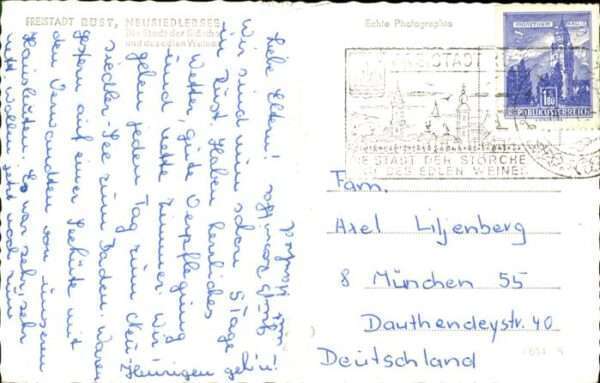 FREISTADT RUST, NEUSIEDLERSEE
Die Stadt der Störche
und des edlen Weines
Echte Photographie
Liebe Eltern!
Wir sind nun schon 5 Tage
in Rust. Haben herrliches
Wetter, gute Verpflegung
und nette Zimmer. Wir
gehen jeden Tag zum Neu-
siedler-See zum Baden. Waren
gestern auf einer Seehütte mit
den Verwandten von unseren
Hausleuten. Es war sehr, sehr
nett. Wollen jetzt noch zum
Heurigen geh'n!
FREISTADT
DIE STADT DER STÖRCHE
UND DES EDLEN WEINES
1.80
REPUBLIK ÖSTERREICH
Fam.
Axel Liljenberg
8 München 55
Dauthendeystr. 40
Deutschland